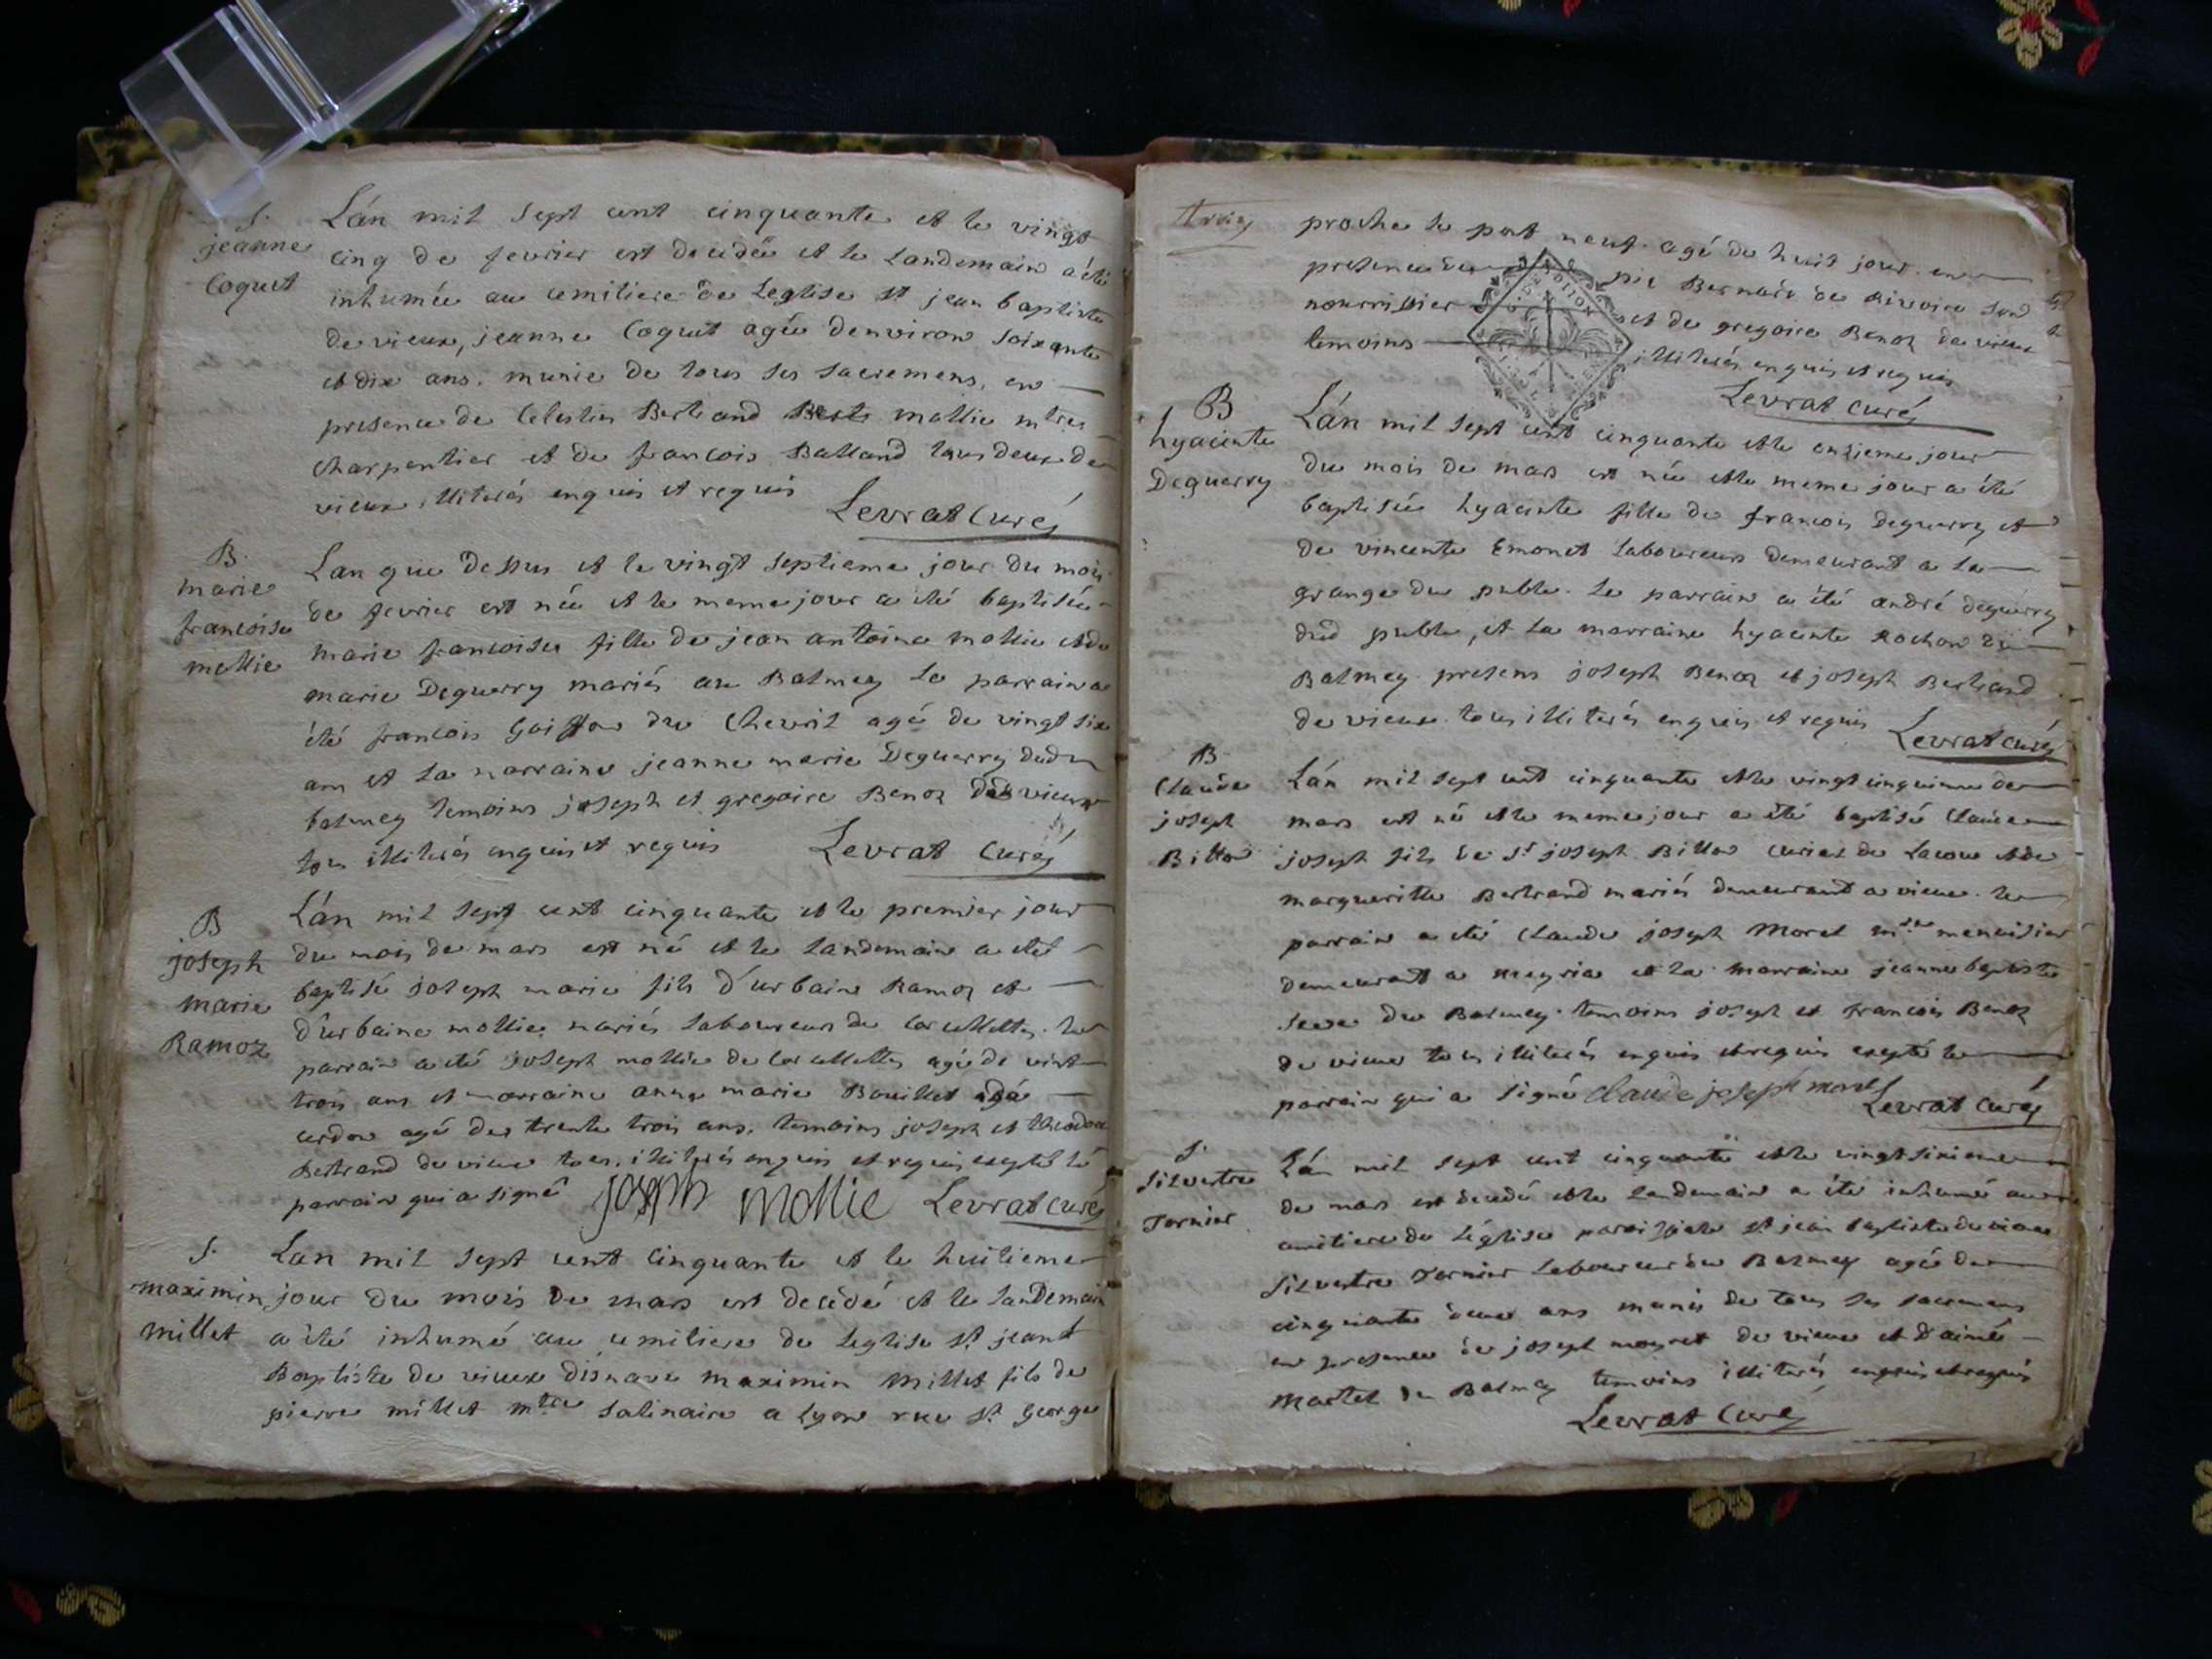 S.
jeanne
Coquet
Lán mil sept cent cinquante et le vingt
cinq de fevrier est decedée et le Landemain a été
inhumée au cemitiere de Leglise st jean baptiste
de vieux, jeanne Coquet agée denviron soixante
et dix ans. munie de tous ses sacremens, en
presence de Celestin Bertrand mollie mtres
charpentier et de francois Balland tous deux de
vieux. illiterés enquis et requis
Levrat Curé
B.
marie
francoise
mollie
Lan que dessus et le vingt septieme jour du mois
de fevrier est née et le meme jour a été baptisée
marie francoise fille de jean antoine mollie et de
marie Deguerry mariés au Balmey Le parrain a
été francois Goiffon du Chevril agé de vingt six
ans et La marraine jeanne marie Deguerry dud
balmey temoins joseph et gregoire Benoz de vieux
tous illiterés enquis et requis
Levrat Curé
B
joseph
marie
Ramoz
Lán mil sept cent cinquante et le premier jour
du mois de mars est né et le Landemain a eté
baptisé joseph marie fils d'urbain Ramoz et
d'urbaine mollie mariés Laboureurs de . Le
parrain a eté joseph mollie de agé de vint
trois ans et marraine anne marie Bouillet
cerdon agé de trente trois ans. temoins joseph et theodore
Bertrand de vieux tous illiterés enquis et requis excepté le
parrain qui a signé joseph mollie Levrat Curé
S.
maximin
millet
Lan mil sept cent Cinquante et le huitieme
jour du mois de mars est decédé et le Landemain
a été inhumé au cemitiere de Leglise st jean
Baptiste de vieux maximin Millet fils de
pierre millet mtre Satinaire a Lyon rue st George
proche le port neuf. agé de huit jour. en
presence de Bernard de Rivoire
nourrissier et de gregoire Benoz de vieux
temoins illiterés enquis et requis
Levrat Curé
B
hyacinte
Deguerry
Lán mil sept cent cinquante et le onzieme jour
du mois de mars est née et le meme jour a été
baptisée hyacinte fille de francois Deguerry et
de vincente Emonet Laboureurs demeurant a La
grange du puble. Le parrain a été andré deguerry
dud puble, et La marraine hyacinte Rochon du
Balmey. presens joseph Benoz et joseph Bertrand
de vieux. tous illiterés enquis et requis
Levrat Curé
B.
Claude
joseph
Billon
Lán mil sept cent cinquante et le vingt cinquieme de
mars est né et le meme jour a été baptisé Claude
joseph fils de Sr joseph Billon et de
marguerite Bertrand mariés demeurant a vieux. le
parrain a eté Claude joseph Morel menuisier
demeurant a meyria et la marraine jeanne baptiste
du Balmey. temoins joseph et francois Benoz
de vieux tous illiterés enquis et requis excepté le
parrain qui a signé Claude joseph morel
Levrat Curé
S.
Silvestre
Tornier
Lán mil sept cent cinquante et le vingt sixieme
de mars est decedé et le Landemain a été inhumé au
cemitiere de Léglise paroissiale st jean baptiste de vieux
Silvestre Tornier Laboureur du Balmey agé de
cinquante deux ans munis de tous ses sacremens
en presence de joseph de vieux et d'aimé
Martel du Balmey temoins illiterés enquis et requis
Levrat Curé